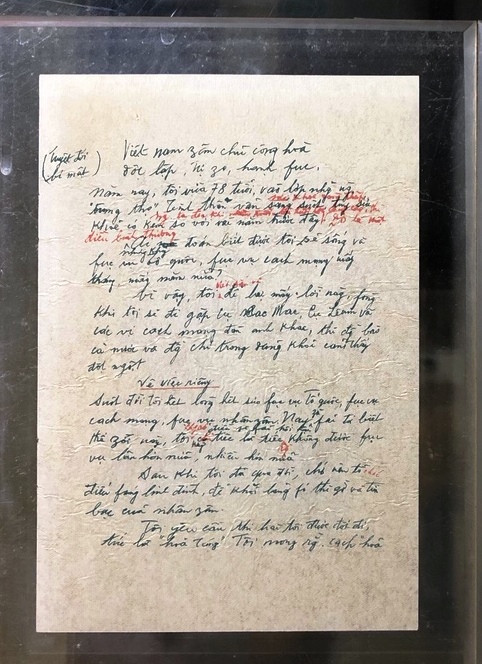 (Tuyệt đối
bí mật)
Việt nam zân chủ cộng hoà
độc lập, tự zo, hạnh fúc.
Năm nay, tôi vừa 78 tuổi, vào lớp những ng
"trung thọ". Tinh thần vẫn sáng suốt, tuy sức
khoẻ có kém so với vài năm trước đây.
điều bình thường
đoán biết được tôi sẽ sống và
fục vụ tổ quốc, fục vụ cách mạng mấy
tháng mấy năm nữa?
Vì vậy, tôi để lại mấy lời này, fòng
khi tôi sẽ đi gặp cụ Các Mác, cụ Lênin và
các vị cách mạng đàn anh khác, thì đ bào
cả nước và đ chí trong đảng khỏi cảm thấy
đột ngột.
Về việc riêng
Suốt đời tôi hết lòng hết sức fục vụ Tổ quốc, fục vụ
cách mạng, fục vụ nhân zân. Nay fải từ biệt
thế zới này, tôi tiếc là tiếc không được fục
vụ lâu hơn nữa, nhiều hơn nữa.
Sau khi tôi đã qua đời, chớ nên tổ chức
điếu fúng linh đình, để khỏi lãng fí thì giờ và tiền
bạc của nhân zân.
Tôi yêu cầu thi hài tôi được đốt đi,
tức là "hoả táng". Tôi mong rằng cách "hoả